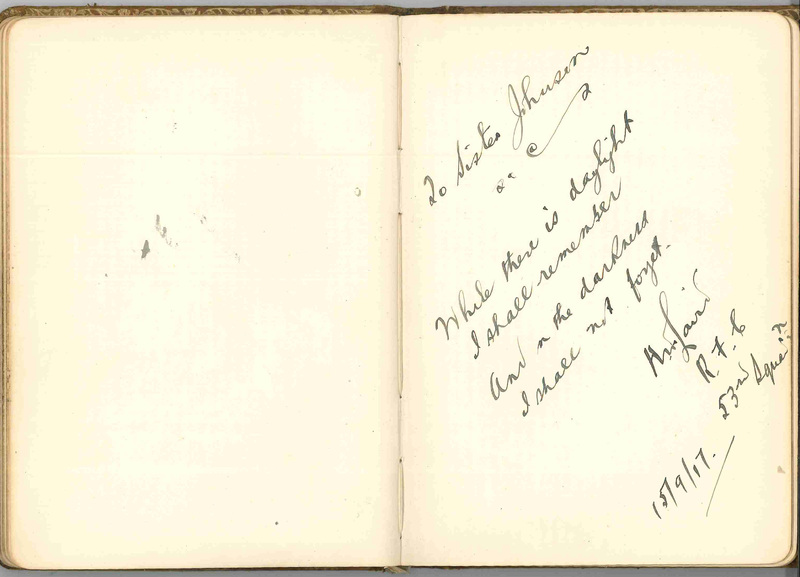 To Sister Johnson
While there is daylight
I shall remember
And in the darkness
I shall not forget.
R.F.C
53rd Squad'n
15/9/17.